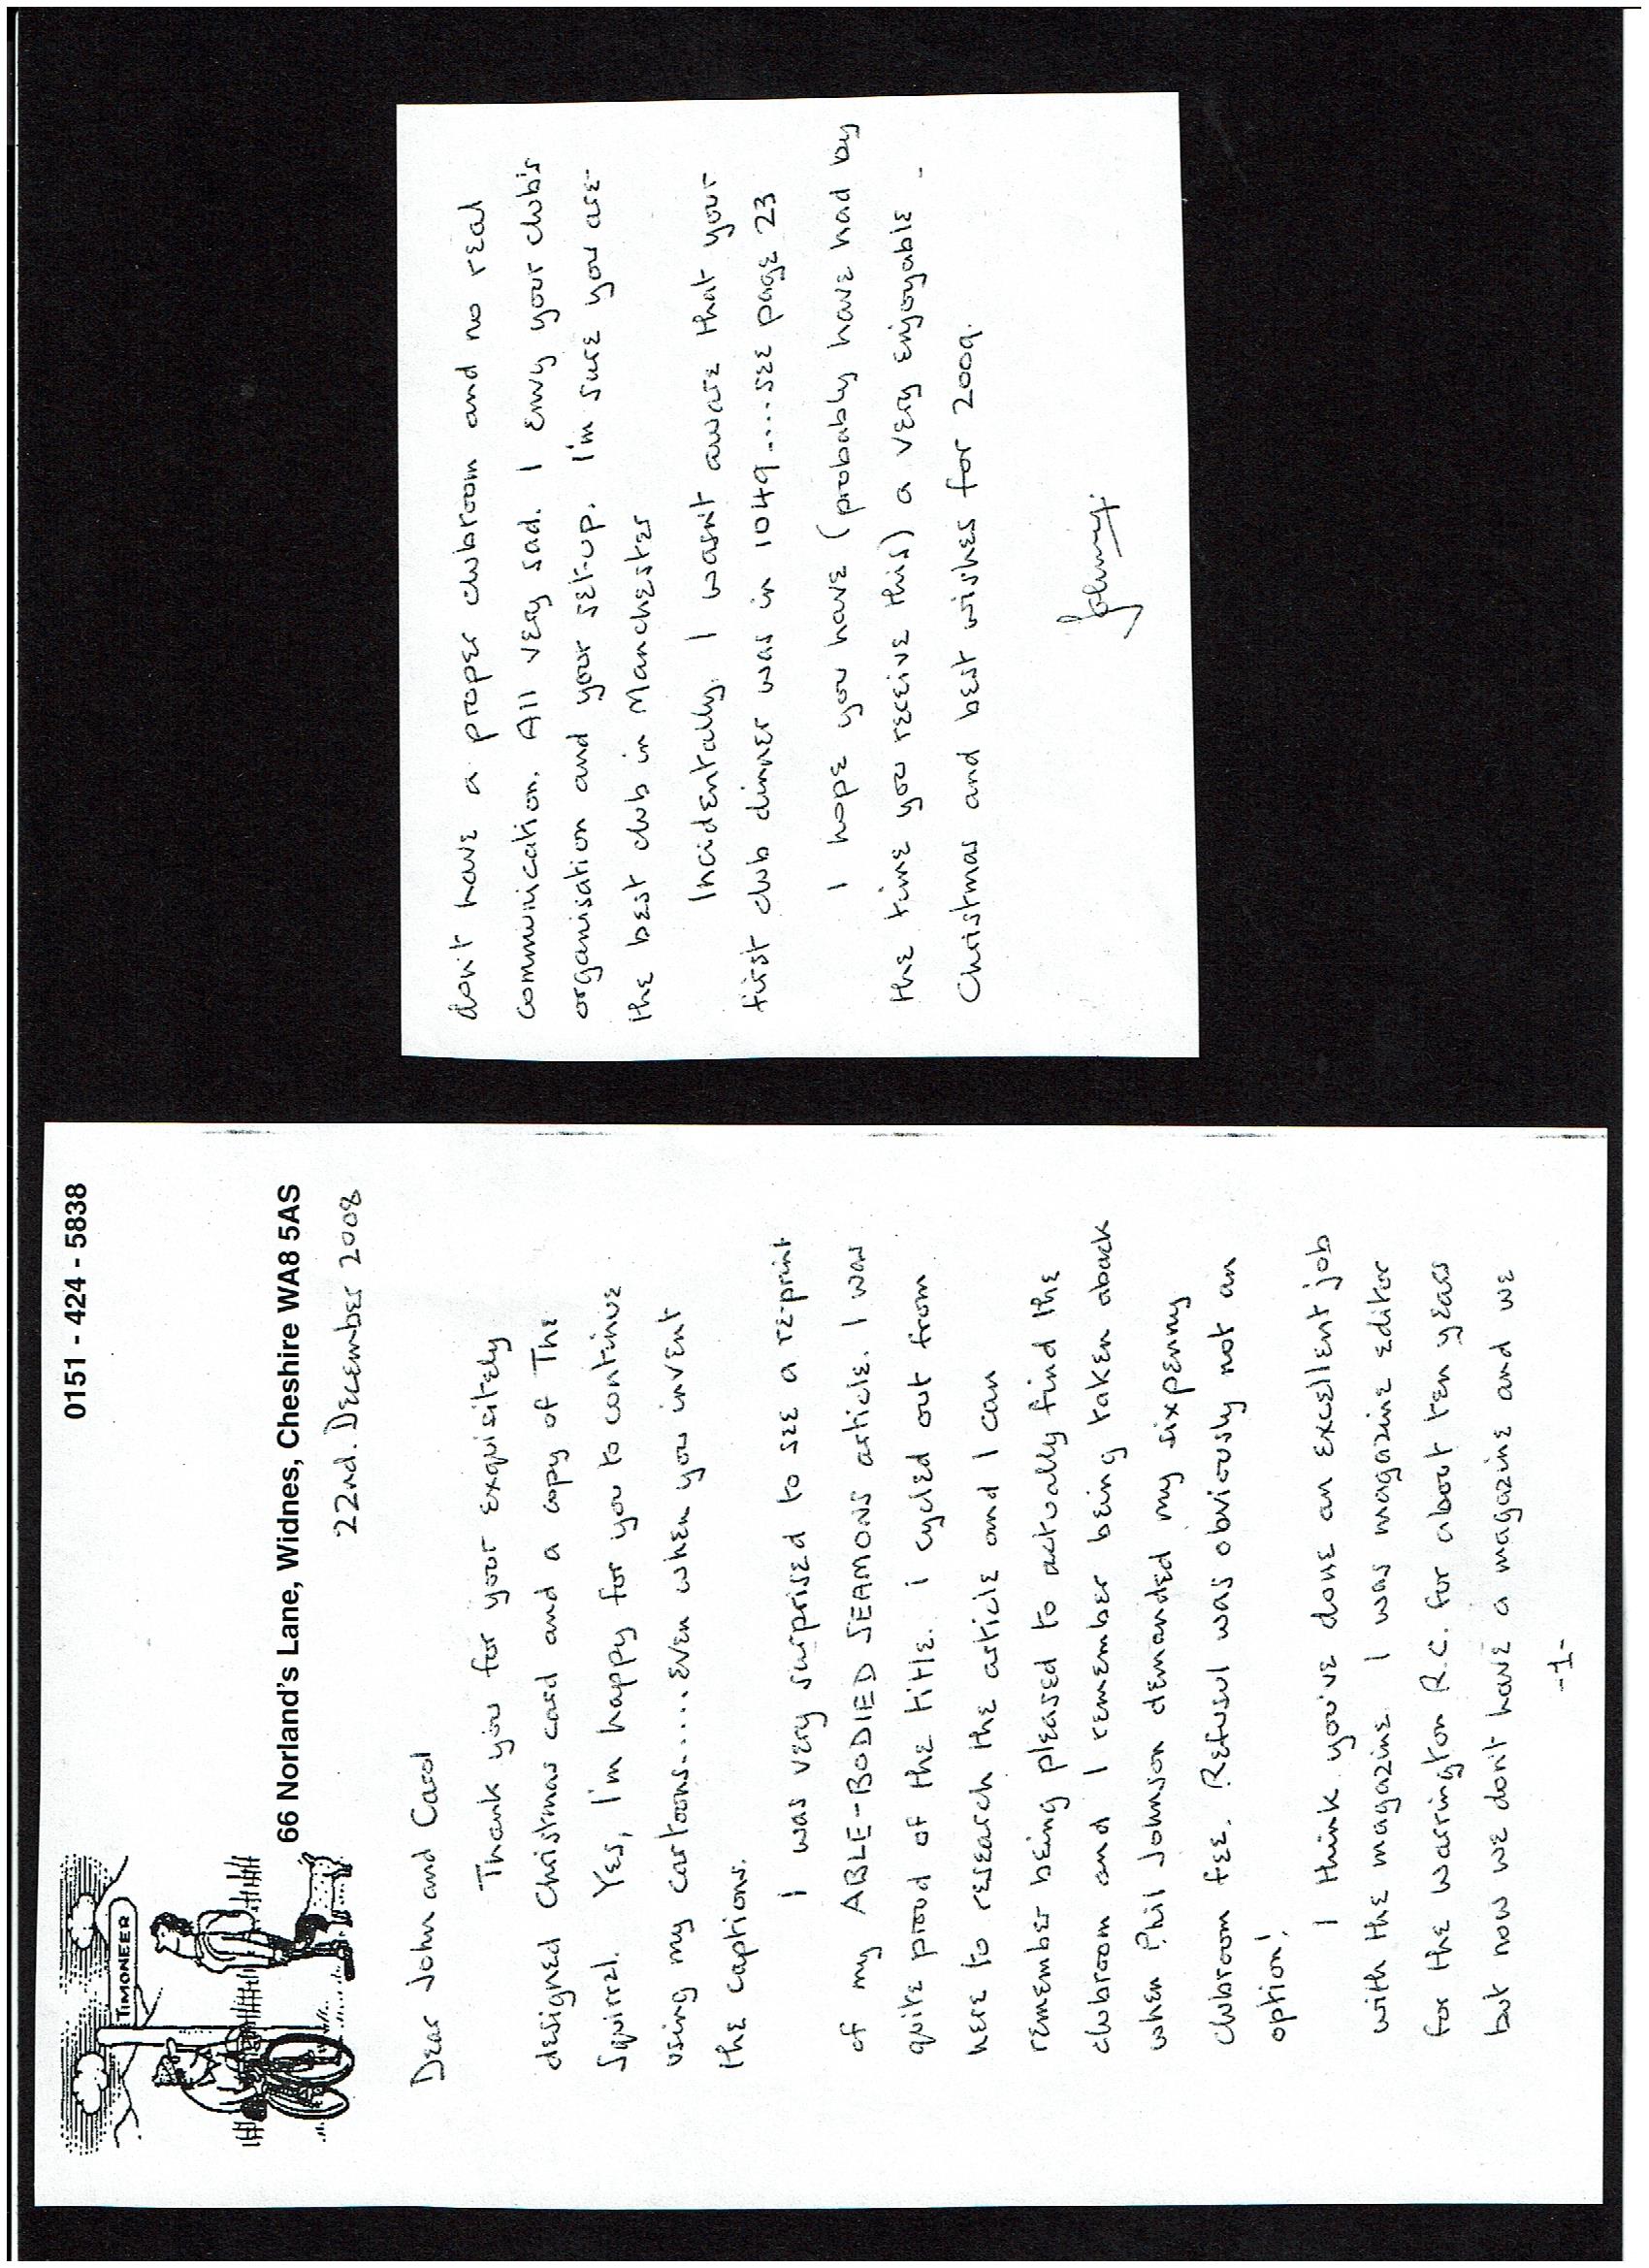 0151 - 424 - 5838
TIMONEER
66 Norland's Lane, Widnes, Cheshire WA8 5AS
22nd. December 2008
Dear John and Carol
Thank you for your exquisitely
designed Christmas card and a copy of The
Squirrel. Yes, I'm happy for you to continue
using my cartoons.....even when you invent
the captions.
I was very surprised to see a re-print
of my ABLE-BODIED SEAMONS article. I was
quite proud of the title. i cycled out from
here to research the article and I can
remember being pleased to actually find the
clubroom and I remember being taken aback
when Phil Johnson demanded my sixpenny
clubroom fee. Refusul was obviously not an
option!
I think you've done an excellent job
with the magazine. I was magazine editor
for the Warrington R.C. for about ten years
but now we don't have a magazine and we
-1-
don't have a proper clubroom and no real
communication. All very sad. I envy your club's
organisation and your set-up. I'm sure you are
the best club in Manchester
Incidentally. I wasn't aware that your
first club dinner was in 1049.....see page 23
I hope you have (probably have had by
the time you receive this) a very enjoyable
Christmas and best wishes for 2009.
Johnny.